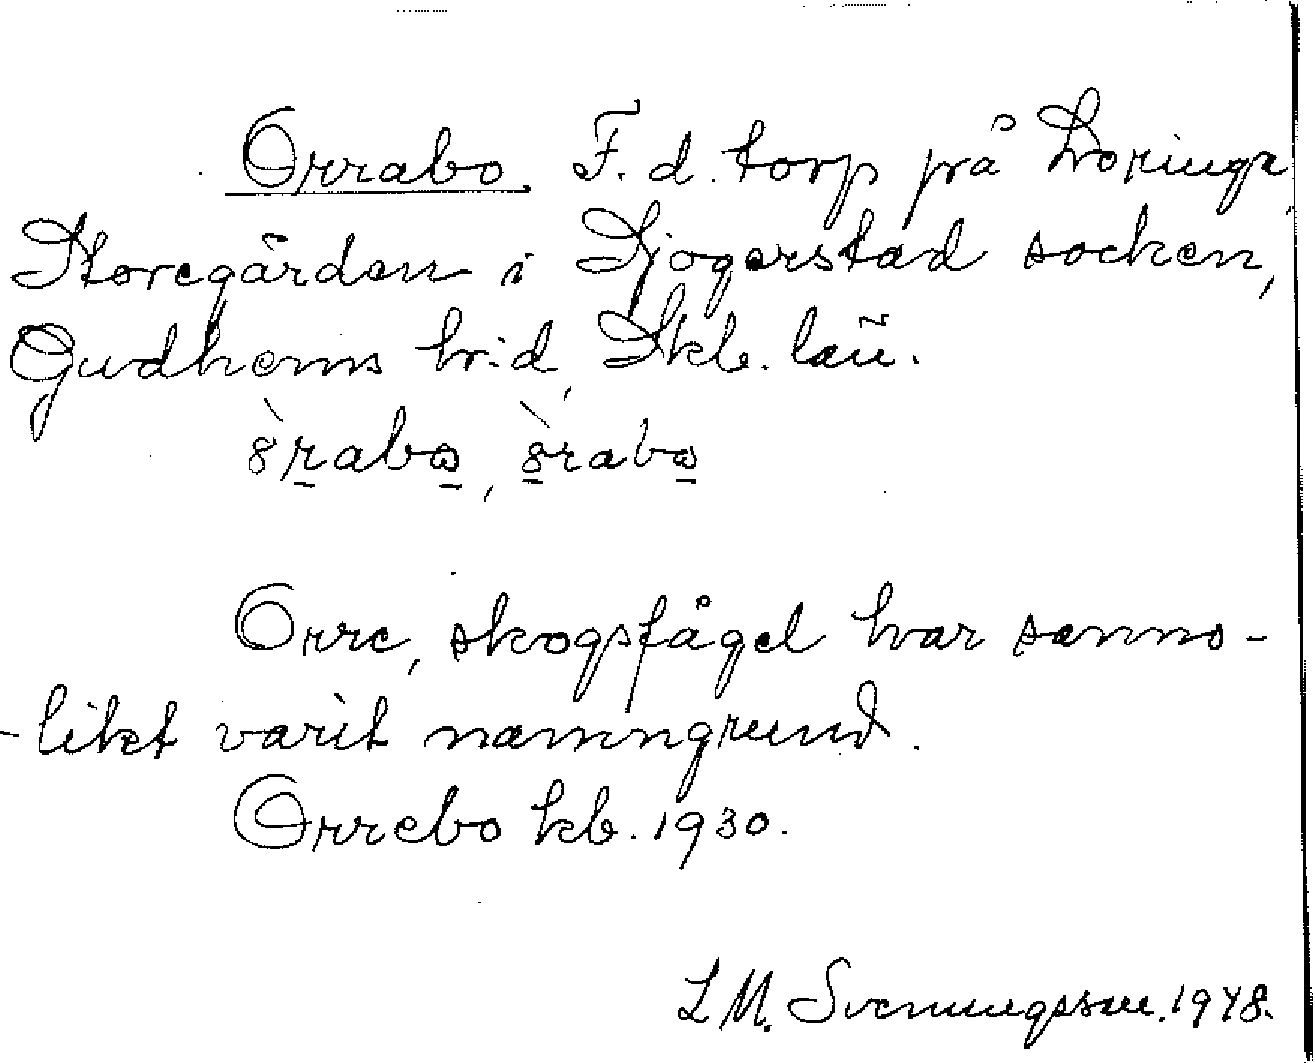 Orrabo. F. d. torp på Lovinga
Storegården i Sjogerstad socken,
Gudhems h:d, Skb. län.
8̀rabɷ, 8̀rabɷ
Orre, skogsfågel har sanno-
-likt varit namngrund.
Orrebo kb. 1930.
L M. Svenungsson. 1948.